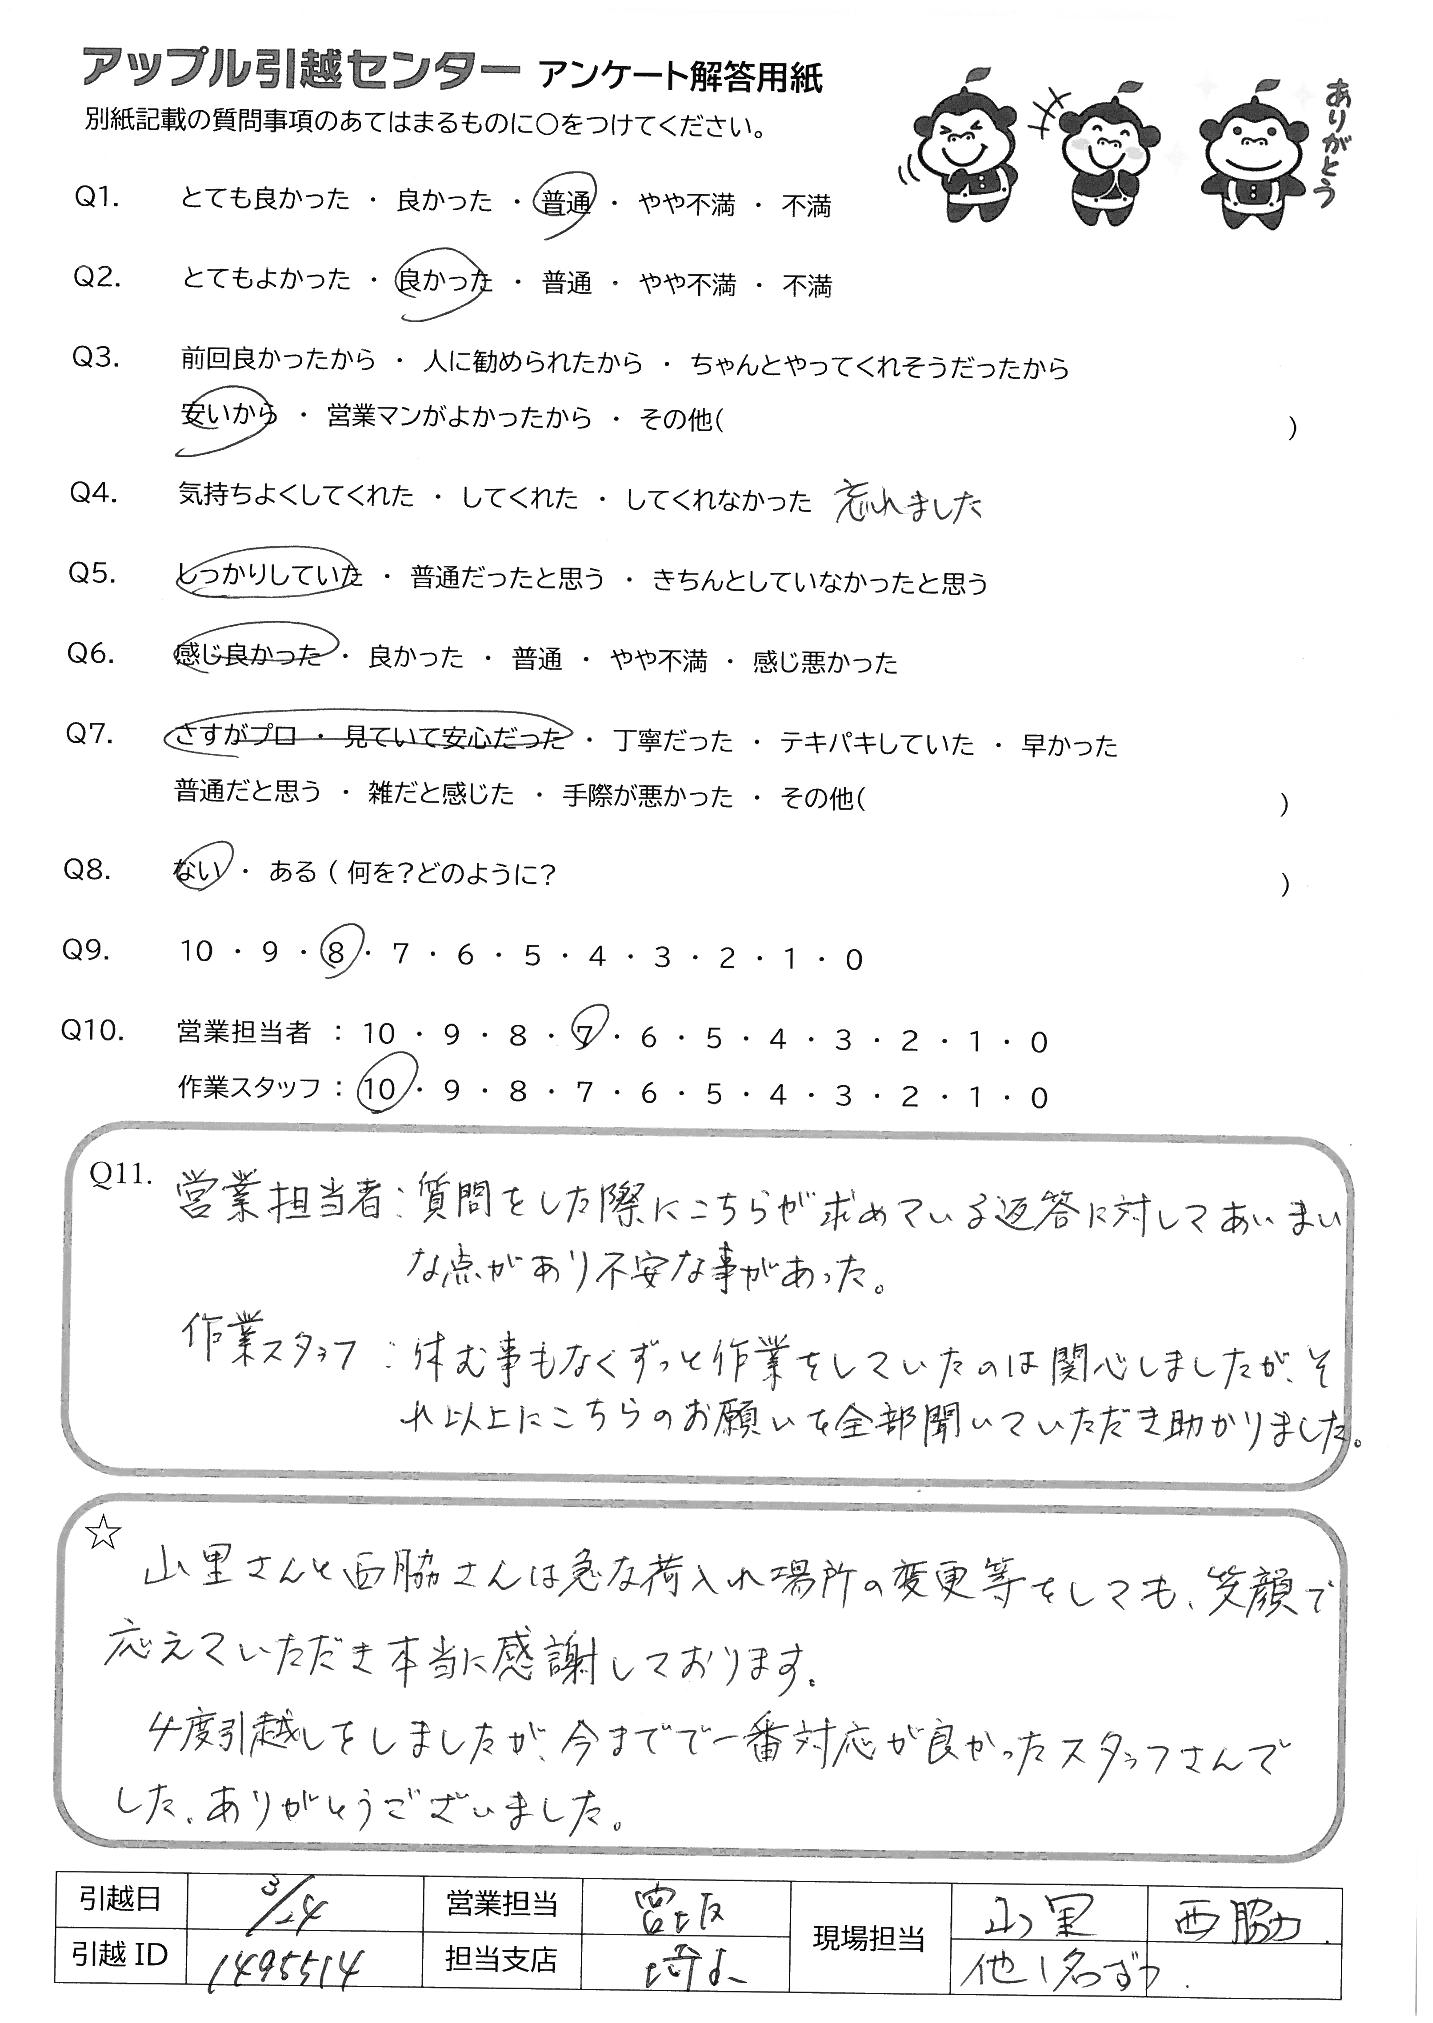 アップル引越センター アンケート解答用紙
別紙記載の質問事項のあてはまるものに○をつけてください。
ありがとう
Q1. とても良かった ・ 良かった ・ 普通 ・ やや不満 ・ 不満
Q2. とてもよかった ・ 良かった ・ 普通 ・ やや不満 ・ 不満
Q3. 前回良かったから ・ 人に勧められたから ・ ちゃんとやってくれそうだったから
安いから ・ 営業マンがよかったから ・ その他( )
Q4. 気持ちよくしてくれた ・ してくれた ・ してくれなかった 忘れました
Q5. しっかりしていた ・ 普通だったと思う ・ きちんとしていなかったと思う
Q6. 感じ良かった ・ 良かった ・ 普通 ・ やや不満 ・ 感じ悪かった
Q7. さすがプロ ・ 見ていて安心だった ・ 丁寧だった ・ テキパキしていた ・ 早かった
普通だと思う ・ 雑だと感じた ・ 手際が悪かった ・ その他( )
Q8. ない ・ ある ( 何を?どのように? )
Q9. 10 ・ 9 ・ 8 ・ 7 ・ 6 ・ 5 ・ 4 ・ 3 ・ 2 ・ 1 ・ 0
Q10. 営業担当者 : 10 ・ 9 ・ 8 ・ 7 ・ 6 ・ 5 ・ 4 ・ 3 ・ 2 ・ 1 ・ 0
作業スタッフ : 10 ・ 9 ・ 8 ・ 7 ・ 6 ・ 5 ・ 4 ・ 3 ・ 2 ・ 1 ・ 0
Q11. 営業担当者:質問をした際にこちらが求めている返答に対してあいまい
な点があり不安な事があった。
作業スタッフ:休む事もなくずっと作業をしていたのは関心しましたが、そ
れ以上にこちらのお願いを全部聞いていただき助かりました。
☆ 山里さんと西脇さんは急な荷入れ場所の変更等をしても、笑顔で
応えていただき本当に感謝しております。
4度引越しをしましたが、今までで一番対応が良かったスタッフさんで
した。ありがとうございました。
引越日 3/24 営業担当 宮坂 現場担当 山里 西脇
引越 ID 1495514 担当支店 埼玉 他1名